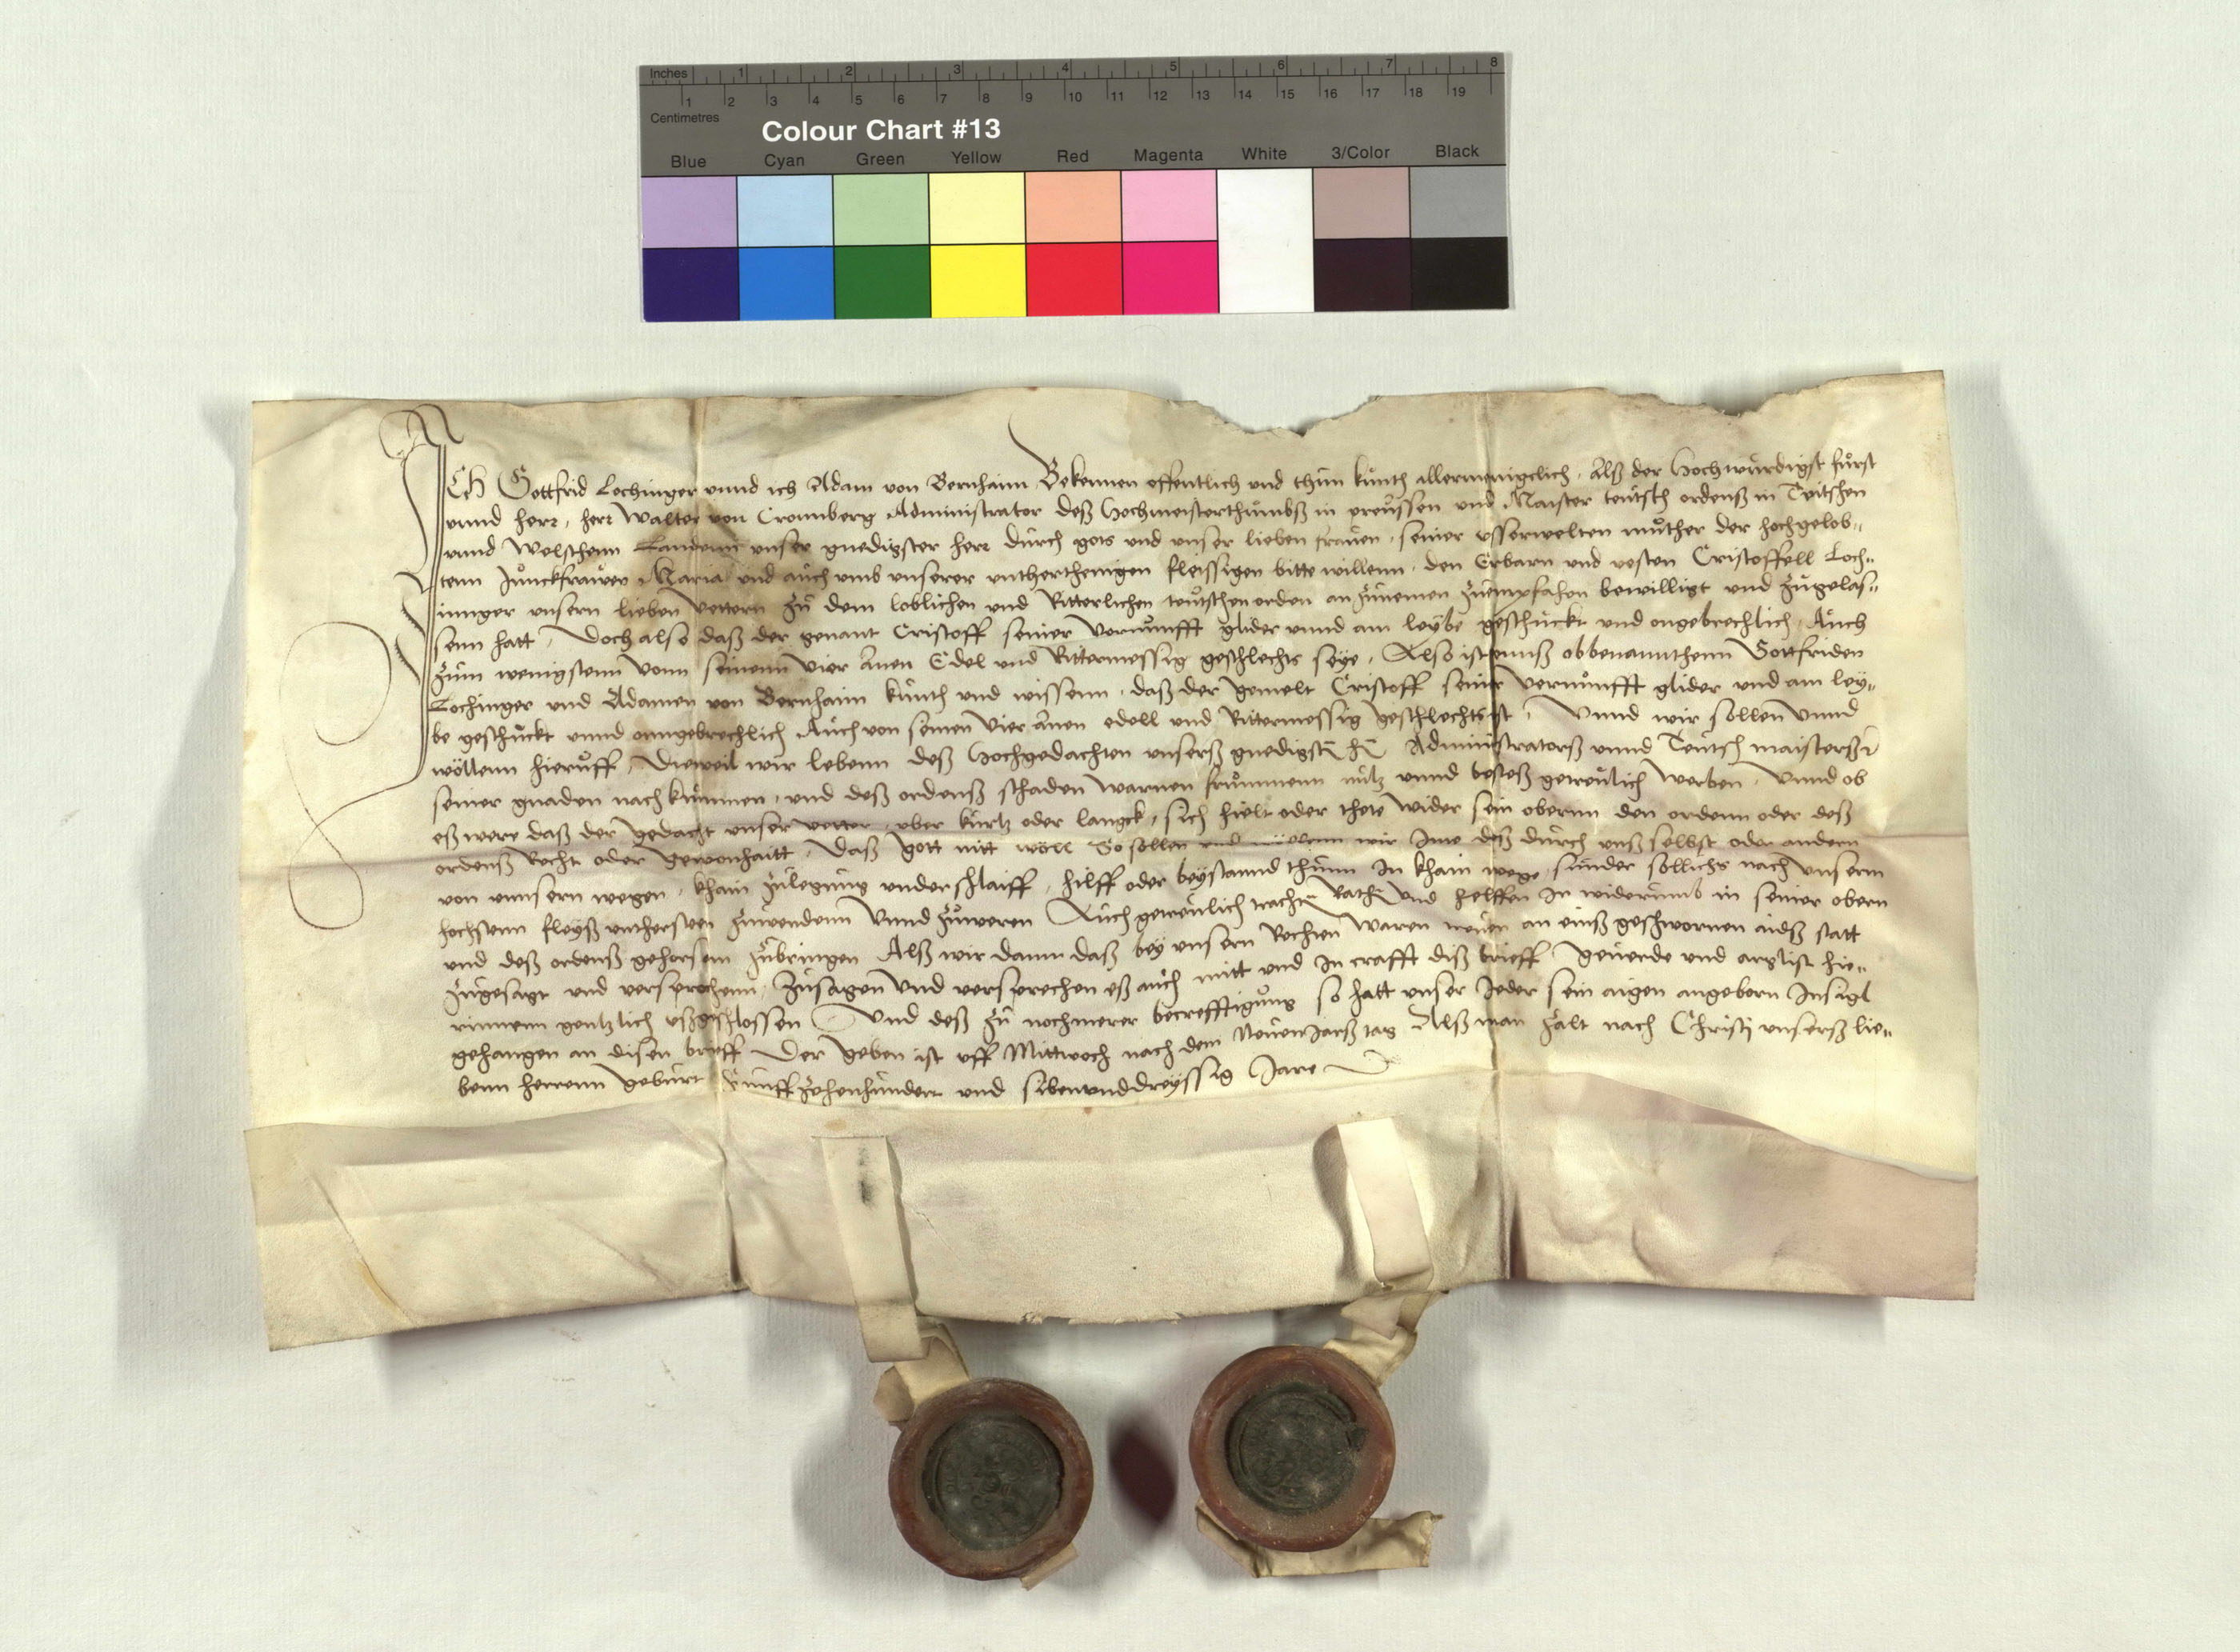 Inches 1 2 3 4 5 6 7 8
1 2 3 4 5 6 7 8 9 10 11 12 13 14 15 16 17 18 19
Centimetres
Colour Chart #13
Blue Cyan Green Yellow Red Magenta White 3/Color Black
ICH Gottfrid Lochinger vnnd ich Adam von Bernhaim Bekennen offentlich vnd thun kunth allermenigclich, Alß der Hochwurdigst furst
vnnd herr, herr Walter von Cronnberg Administrator deß Hochmeisterthumbß in preussen vnd Maister teutsch ordenß in Teitschen
vnnd Welschenn Landenn vnser gnedigster herr durch gots vnd vnser lieben frauen, seiner vsserwelten muther der hochgelob-
tenn Junckfrawen Maria vnd auch vmb vnserer vntherthenigen fleissigen bitte willenn, den Erbarn vnd vesten Cristoffell Loch-
innger vnsern lieben Vettern zu dem loblichen vnd Ritterlichen teutschen orden an zunemen zuempfahen bewilligt vnd zugelas-
senn hatt, Doch also daß der genant Cristoff seiner Vernunfft glider vnnd am leybe geschuckt vnd ongebrechlich, Auch
zum wenigstenn Vonn seinenn Vier Anen Edel vnd Rittermessig geschlechts seye, Also ist vnnß obbenannthenn Gottfriden
Lochinger vnd Adamen von Bernhaim kunth vnd wissenn, daß der gemelt Cristoff seiner vernunfft glider vnd am ley-
be geschuckt vnnd onngebrechlich Auch von seinen Vier anen edell vnd Rittermessig geschlechts ist, Vnnd wir sollen Vnnd
wöllenn hieruff, Dieweil wir lebenn deß Hochgedachten vnserß gnedigstn hn Administratorß vnnd Teutsch maisterß
seiner gnaden nach kummen, vnd deß ordenß schaden warnen frummenn nutz vnnd bestes getreulich werben, Vnnd ob
eß were daß der gedacht vnser vetter, vber kurtz oder langck, sich hielt oder thete wider sein obernn den ordenn oder deß
ordenß Recht oder gewonhaitt, Daß gott nitt wöll So sollen vnd wöllenn wir Ime deß durch vnß selbst oder andern
von vnnsern wegen, khain zulegung vnderschlaiff, hilff oder beystannd thunn In khain wege, sunder sollichs nach vnserm
hochstenn fleyß vntherstien zuwendenn Vnnd zuweren Auch getreulich trachtn Rathn Vnd helffen In widerumb in seiner obern
vnd deß ordenß gehorsam zubringen Alß wir dann daß bey vnsern Rechten waren treuen an einß geschwornen aidß statt
zugesagt vnd versprochenn, Zusagen Vnd versprechen eß auch mitt vnd In crafft diß brieff geuerde vnd arglist hie-
rinnenn gentzlich vßgeschlossen Vnd deß zu nochmerer becrefftigung so hatt vnser Jeder sein aigen angeborn Insigl
gehangen an disen brieff Der geben ist vff Mittwoch nach dem Neuen Jarß tag Alß man zalt nach Christj vnserß lie-
benn herrenn geburt Funff zehenhundert vnd sibenunddreyssig Jare